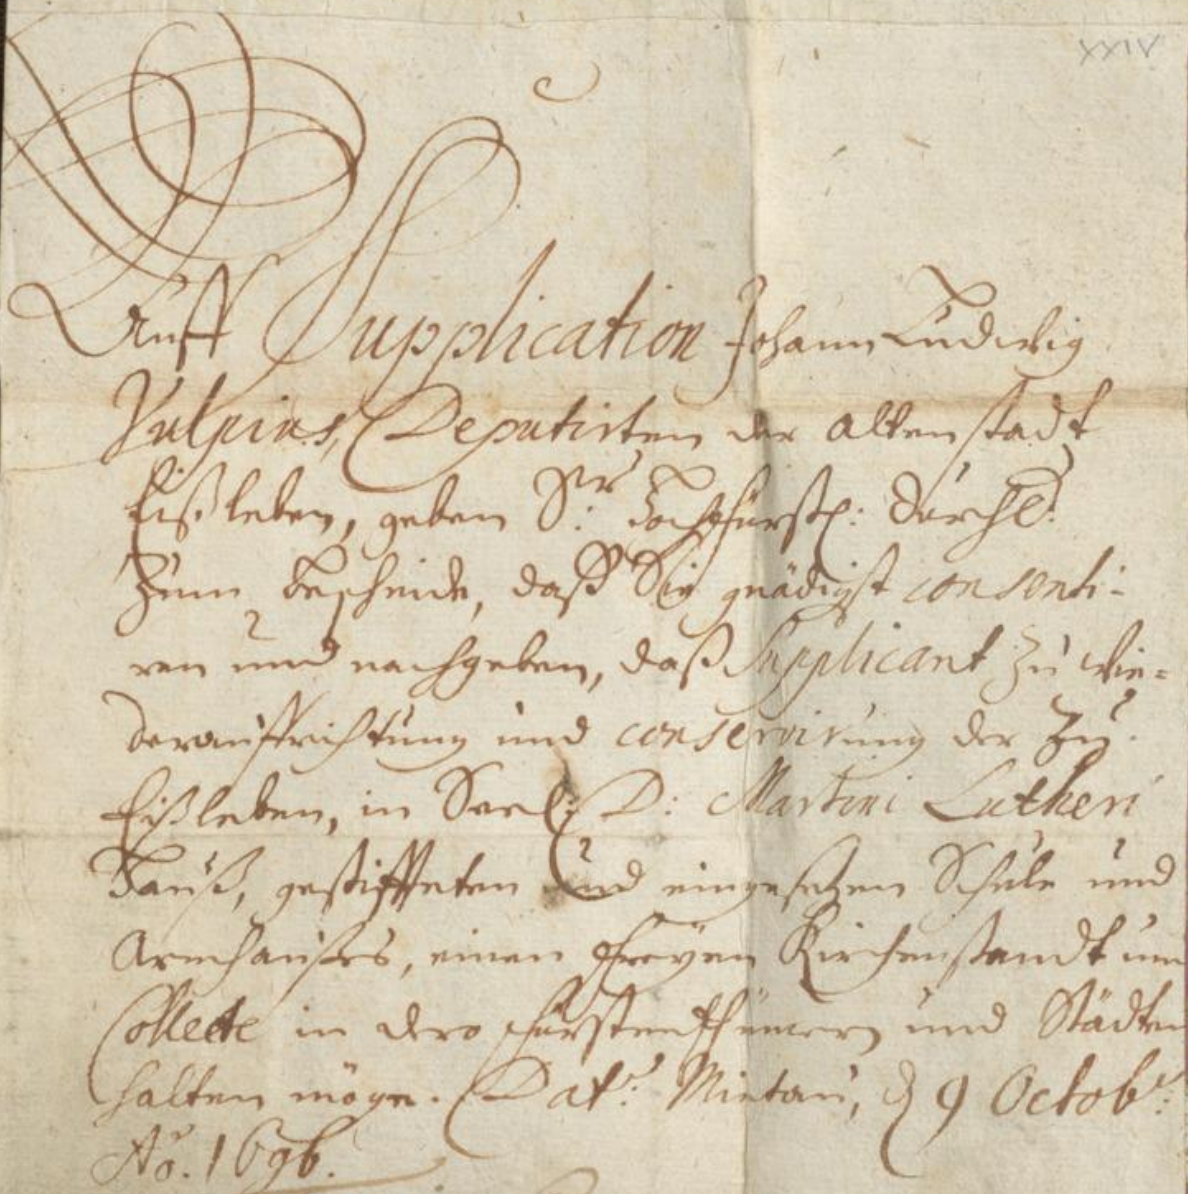 XXIV
Auff Supplication Johann Ludwig
Vulpius, Deputirten der Altenstadt
Eißleben, geben Sr: Hochfürstl: Durchl:
Zum bescheide, daß Sie gnädigst consenti-
ren und nachgeben, daß Supplicant zu wie-
derauffrichtung und conservirung der Zu
Eißleben, in Seel: D: Martini Lutheri
Hauß, gestiffteten und eingesetzen Schule und
Armhauses, einen freyen Kirchenstandt und
Collecte in dero fürstenthümern und Städten
halten möge. Dat: Mietau, d 9 Octob:
Ao. 1696.